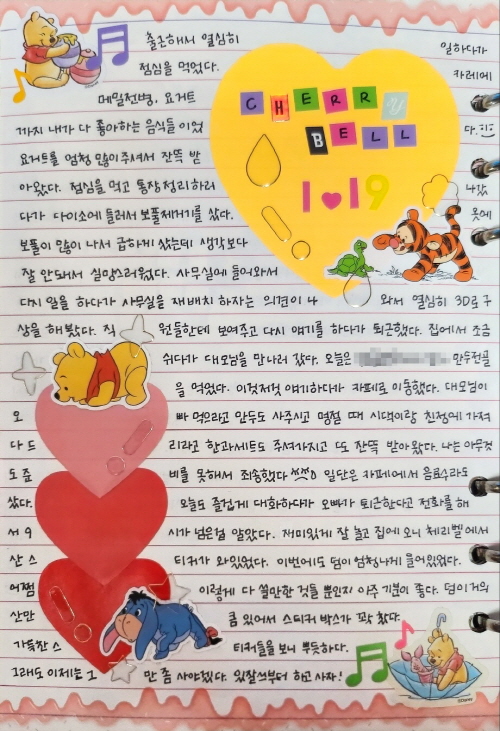 출근해서 열심히 일하다가
점심을 먹었다. 카레에
메밀전병, 요거트
까지 내가 다 좋아하는 음식들이었다.
요거트를 엄청 많이 주셔서 잔뜩 받
아왔다. 점심을 먹고 통장정리하러 나갔
다가 다이소에 들러서 보풀제거기를 샀다. 옷에
보풀이 많이 나서 급하게 샀는데 생각보다
잘 안돼서 실망스러웠다. 사무실에 들어와서
다시 일을 하다가 사무실을 재배치 하자는 의견이 나와서 열심히 3D로 구
상을 해봤다. 직원들한테 보여주고 다시 얘기를 하다가 퇴근했다. 집에서 조금
쉬다가 대모님을 만나러 갔다. 오늘은 만두전골
을 먹었다. 이것저것 얘기하다가 카페로 이동했다. 대모님이
오빠 먹으라고 만두도 사주시고 명절 때 시댁이랑 친정에 가져
다 드리라고 한과세트도 주셔가지고 또 잔뜩 받아왔다. 나는 아무것
도 준비를 못해서 죄송했다 일단은 카페에서 음료수라도
샀다. 오늘도 즐겁게 대화하다가 오빠가 퇴근한다고 전화를 해
서 9시가 넘은걸 알았다. 재미있게 잘 놀고 집에 오니 체리벨에서
산 스티커가 와있었다. 이번에도 덤이 엄청나게 들어있었다.
어쩜 이렇게 다 쓸만한 것들 뿐인지 아주 기분이 좋다. 덤이 거의
산만큼 있어서 스티커 박스가 꽉 찼다.
가득찬 스티커들을 보니 뿌듯하다.
그래도 이제는 그만 좀 사야겠다. 있잖쓰부터 하고 사자!
CHERRY
BELL
1♥19